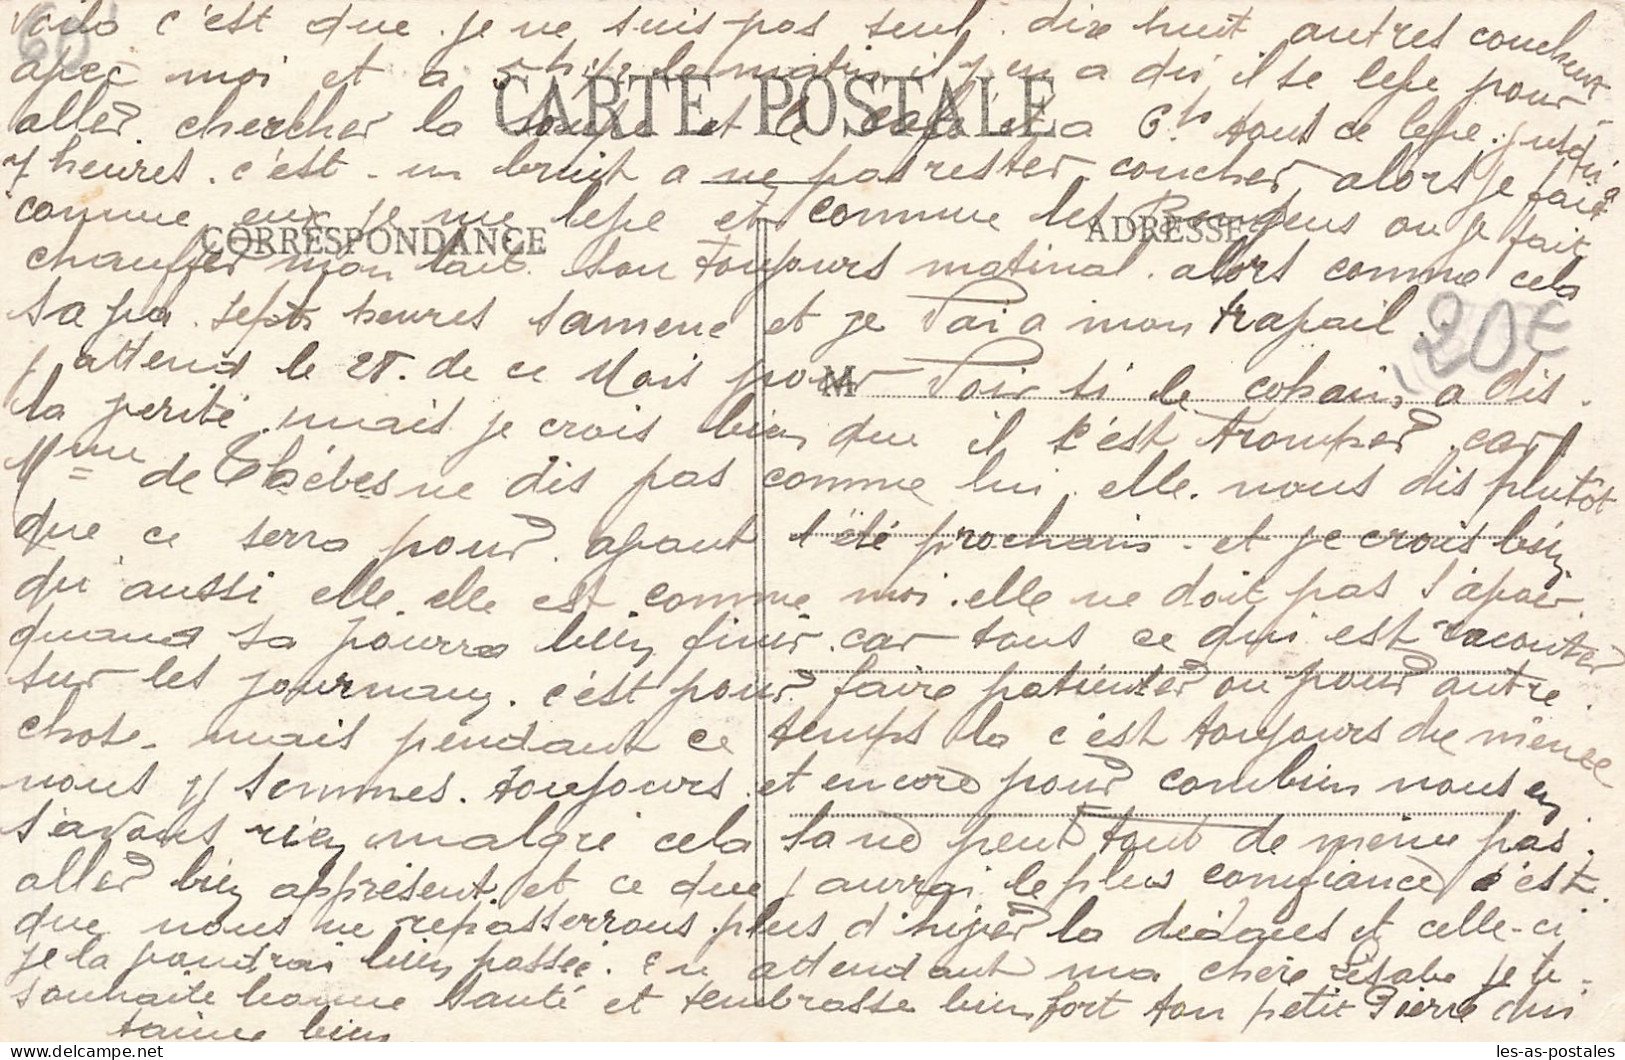 voilo c'est que je ne suis pas seul dix huit autres couchent
avec moi et a 5 h 1/2 le matin il y en a dis il se leve pour
CARTE POSTALE
aller chercher la soupe et le café et a 6h tous ce leve jusqu'a
7 heures. c'est un bruit a ne pas rester coucher alors je fait
comme eux je me leve et comme les ou je fait
CORRESPONDANCE ADRESSE
chauffer mon lait. ton toujours matinal. alors comme cela
sa va. sept heures samene et je vai a mon travail.
20€
j attend le 25. de ce Mois pour voir si le cobain a dis
M
la verité. mais je crois bien que il s'est tromper. car
Mme de Thèbes ne dis pas comme lui. elle. nous dis plutôt
que ce serra pour. avant l'été prochain. et je crois bien
qu'aussi elle. elle est comme moi. elle ne doit pas savoir.
quand sa pourra bien finir. car tous ce qui est raconter
sur les journaux. c'est pour faire patienter ou pour autre
chose. mais pendant ce temps la c'est toujours de même
nous y sommes. toujours. et encore pour combien nous en
savons rien malgré cela sa ne peut tout de même pas.
aller bien appresent. et ce que j aurrai le plus confiance c'est.
que nous ne repasserrons plus d'hiver la dedans et celle-ci
je la voudrai bien passée. en attendant ma chère je te
souhaite bonne santé et tembrasse bien fort ton petit Pierre qui
taime bien
60
les-as-postales